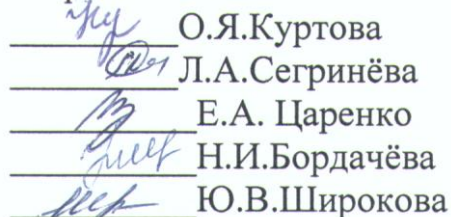 О.Я.Куртова
Л.А.Сегринёва
Е.А. Царенко
Н.И.Бордачёва
Ю.В.Широкова